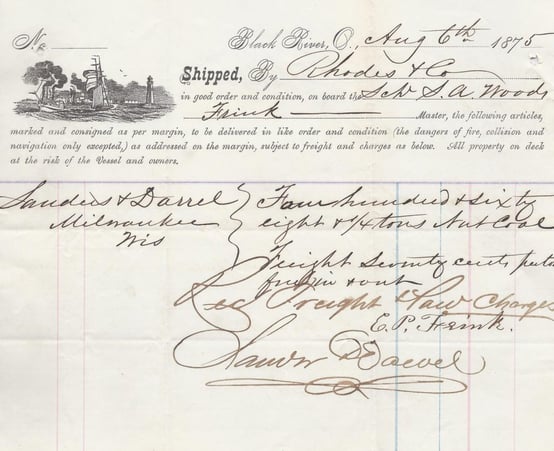 No.
Black River, O., Aug 6th 1875
Shipped, By Rhodes & Co
in good order and condition, on board the Schr S. A. Wood
Frink Master, the following articles,
marked and consigned as per margin, to be delivered in like order and condition (the dangers of fire, collision and
navigation only excepted,) as addressed on the margin, subject to freight and charges as below. All property on deck
at the risk of the Vessel and owners.
Sanders & Darrel
Milwaukee
Wis
Four hundred & sixty
eight & 1/4 tons Nut Coal
Freight Seventy cents
free in & out
Rec Freight & Charges
E. P. Frink.